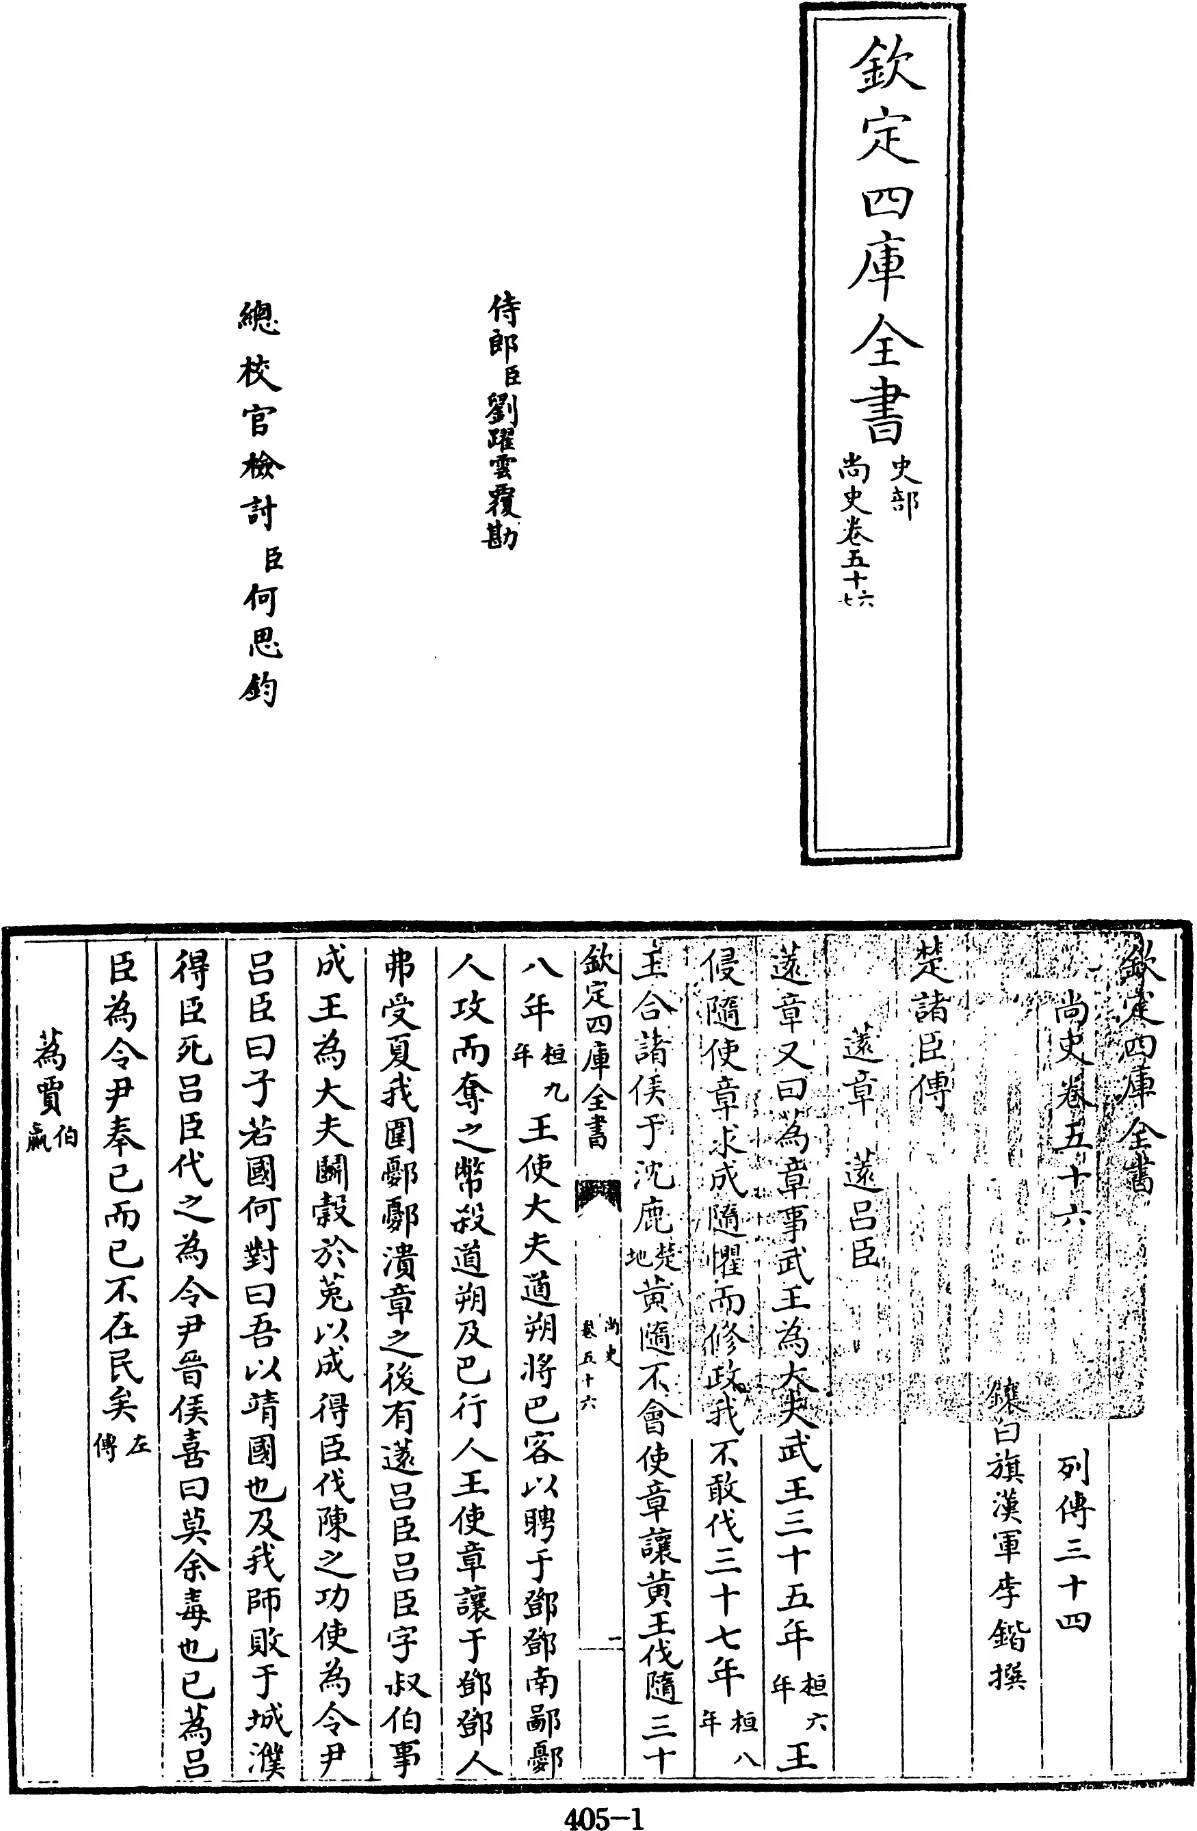 欽定四庫全書
史部
尚史卷五十六
七
侍郎臣劉躍雲覆勘
總校官檢討臣何思鈞
欽定四庫全書
尚史卷五十六 列傳三十四
鑲白旗漢軍李鍇撰
楚諸臣傳
薳章 薳呂臣
薳章又曰蒍章事武王為大夫武王三十五年桓六年王
侵隨使章求成隨懼而修政我不敢伐三十七年桓八年
王合諸侯于沈鹿楚地黃隨不會使章讓黃王伐隨三十
欽定四庫全書 尚史卷五十六 一
八年桓九年王使大夫道朔將巴客以聘于鄧鄧南鄙鄾
人攻而奪之幣殺道朔及巴行人王使章讓于鄧鄧人
弗受夏我圍鄾鄾潰章之後有薳呂臣呂臣字叔伯事
成王為大夫鬭穀於菟以成得臣伐陳之功使為令尹
呂臣曰子若國何對曰吾以靖國也及我師敗于城濮
得臣死呂臣代之為令尹晉侯喜曰莫余毒也已蒍呂
臣為令尹奉己而已不在民矣左傳
蒍賈伯嬴
405-1